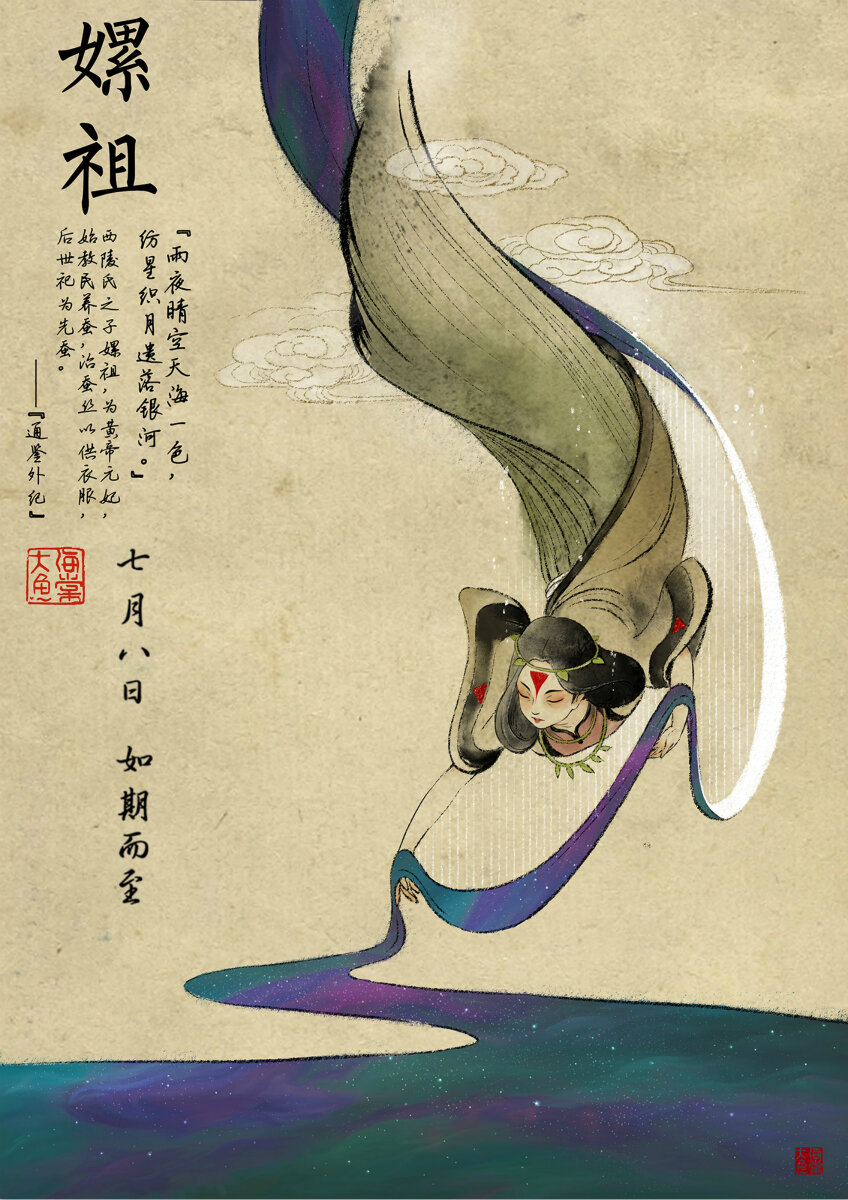 嫘祖
『雨夜晴空天海一色，
纺星织月遗落银河。』
西陵氏之子嫘祖，为黄帝元妃，
始教民养蚕，治蚕丝以供衣服，
后世祀为先蚕。
——『通鉴外纪』
大鱼
海棠
七月八日 如期而至